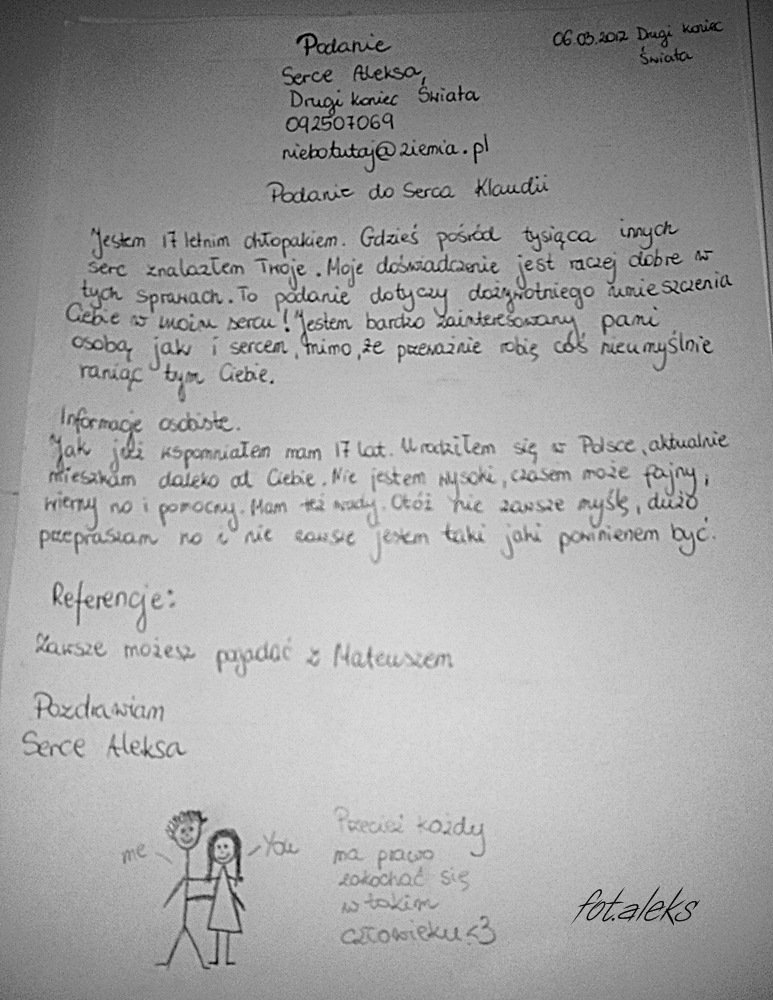 Podanie
06.03.2012 Drugi koniec
Świata
Serce Aleksa,
Drugi koniec Świata
092507069
niebotutaj@ziemia.pl
Podanie do Serca Klaudii
Jestem 17 letnim chłopakiem. Gdzieś pośród tysiąca innych
serc znalazłem Twoje. Moje doświadczenie jest raczej dobre w
tych sprawach. To podanie dotyczy dożywotniego umieszczenia
Ciebie w moim sercu! Jestem bardzo zainteresowany pani
osobą jak i sercem, mimo, że przeważnie robię coś nieumyślnie
raniąc tym Ciebie.
Informacje osobiste.
Jak już wspomniałem mam 17 lat. Urodziłem się w Polsce, aktualnie
mieszkam daleko od Ciebie. Nie jestem wysoki, czasem może fajny,
wierny no i pomocny. Mam też wady. Otóż nie zawsze myślę, dużo
przepraszam no i nie zawsze jestem taki jaki powinienem być.
Referencje:
Zawsze możesz pogadać z Mateuszem
Pozdrawiam
Serce Aleksa
me
You
Przecież każdy
ma prawo
zakochać się
w takim
człowieku <3
fot.aleks